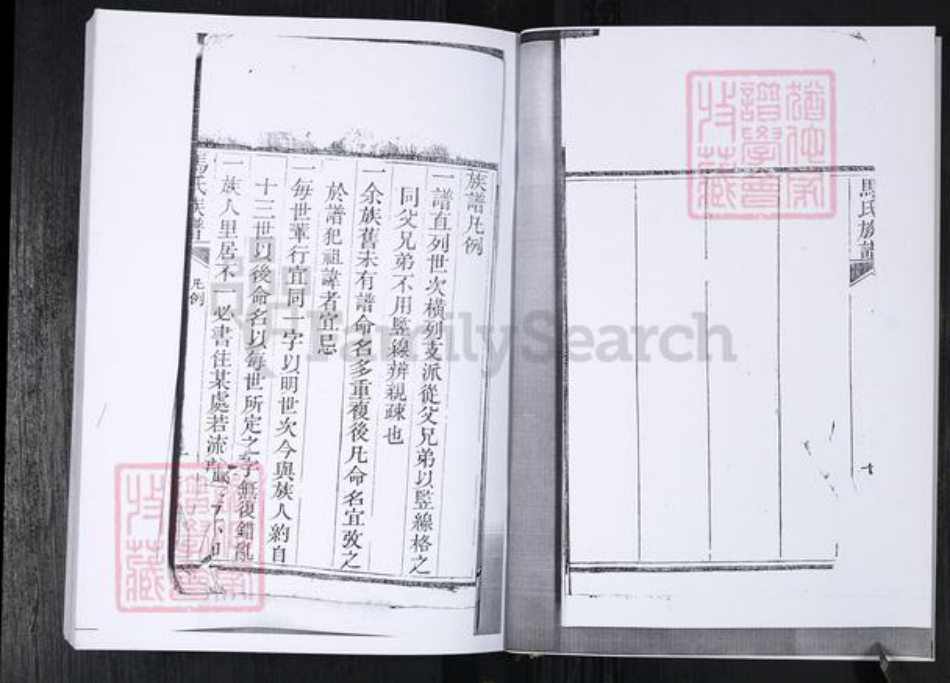 馬氏族譜
十
族譜凡例
一譜直列世次橫列支派從父兄弟以監線格之
同父兄弟不用監線辨親疎也
一余族舊未有譜命名多重複後凡命名宜攷之
於譜犯祖諱者宜忌
一每世輩行宜同一字以明世次今與族人約自
十三世以後命名以每世所定之字無復錯亂
一族人里居不一必書住某處若流
馬氏族譜
凡例
猶他家
譜學會
收藏
猶他家
譜學會
收藏
FamilySearch